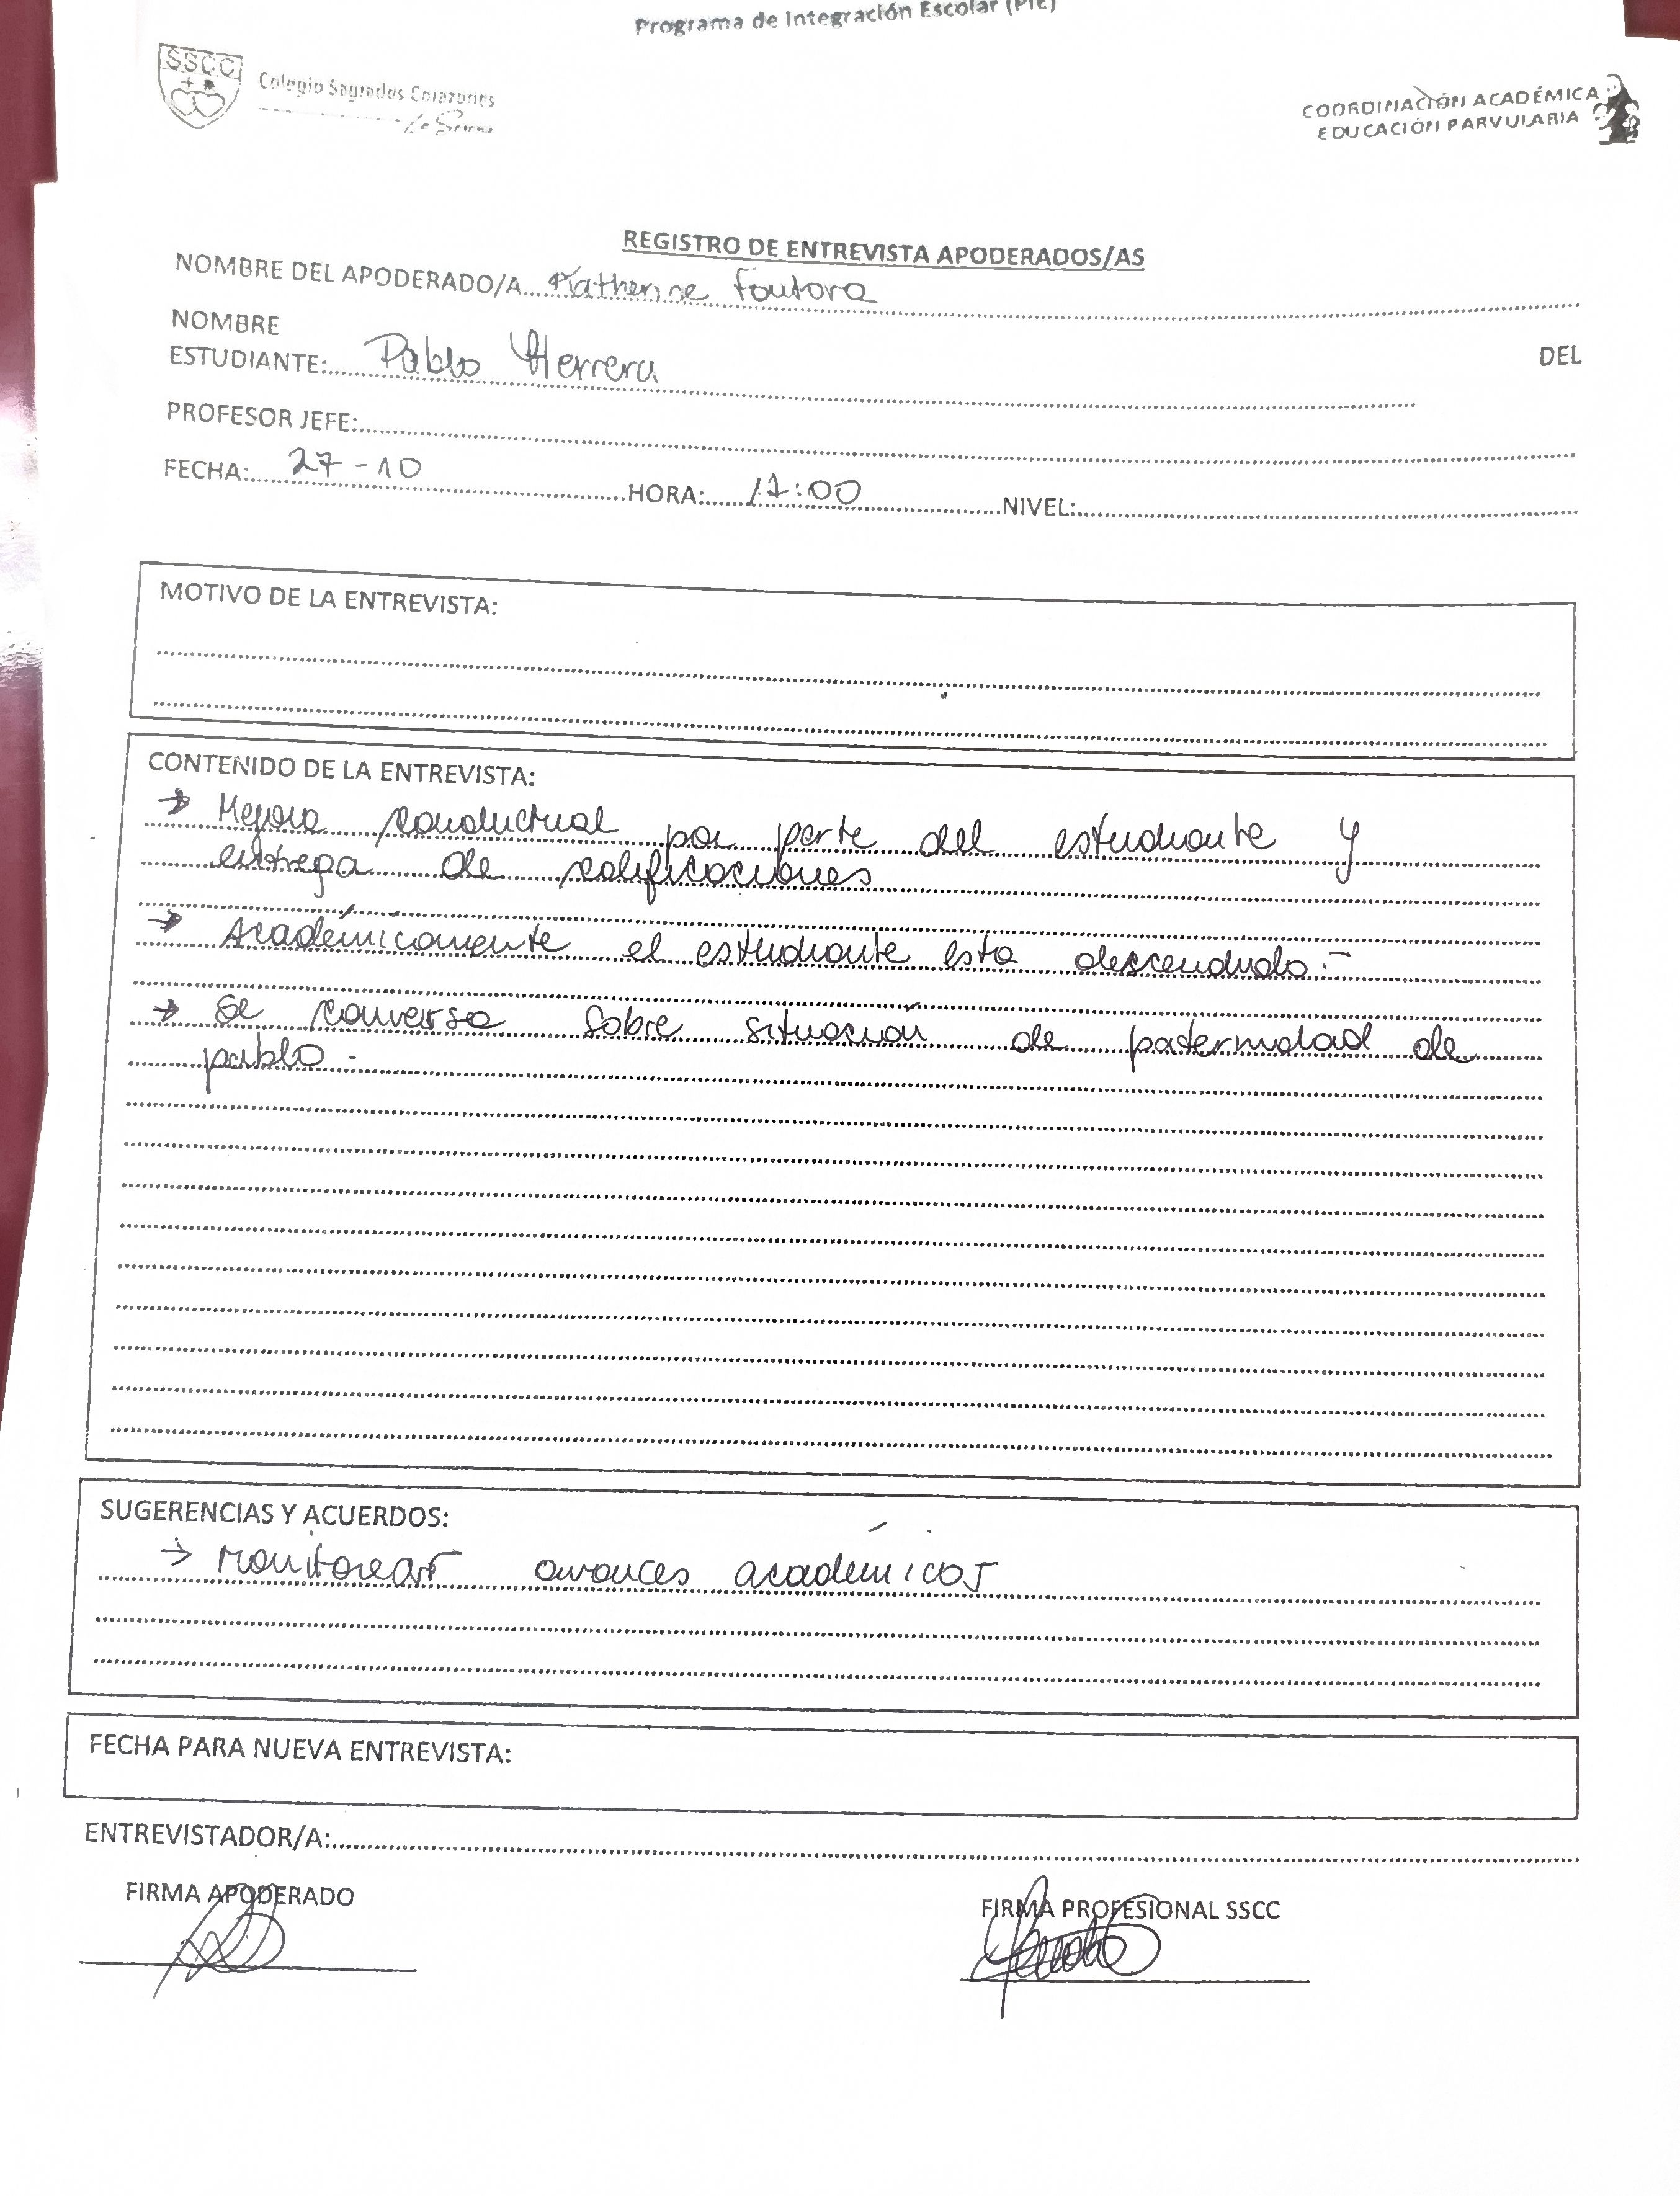 Programa de Integración Escolar (PIE)
SSCC
Colegio Sagrados Corazones
COORDINACIÓN ACADÉMICA
EDUCACIÓN PARVULARIA
REGISTRO DE ENTREVISTA APODERADOS/AS
NOMBRE DEL APODERADO/A Katherine Foutora
NOMBRE DEL
ESTUDIANTE: Pablo Herrera
PROFESOR JEFE:
FECHA: 27-10 HORA: 17:00 NIVEL:
MOTIVO DE LA ENTREVISTA:
CONTENIDO DE LA ENTREVISTA:
→ Mejora conductual por parte del estudiante y
entrega de calificaciones
→ Académicamente el estudiante esta descendido.-
→ Se conversa sobre situación de paternidad de
pablo.-
SUGERENCIAS Y ACUERDOS:
→ Monitorear avances académicos
FECHA PARA NUEVA ENTREVISTA:
ENTREVISTADOR/A:
FIRMA APODERADO
FIRMA PROFESIONAL SSCC